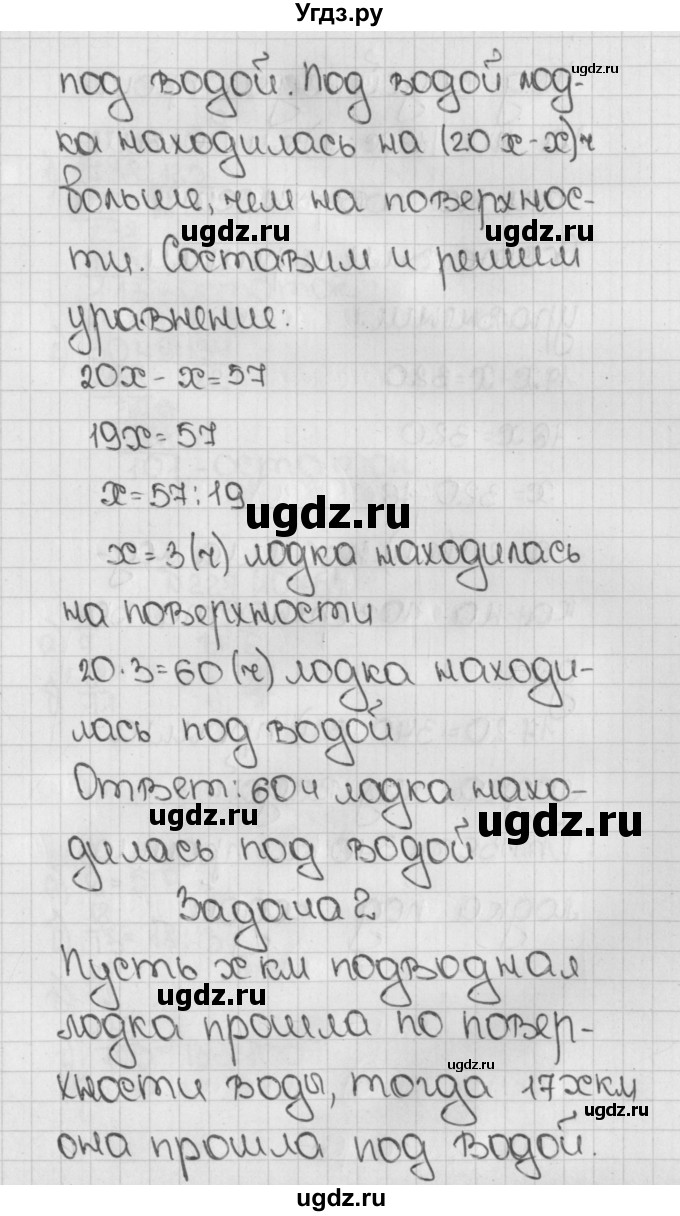 Угдз.ру
под водой. Под водой лод-
ка находилась на (20x-x)ч
больше, чем на поверхнос-
ти. Составим и решим
уравнение:
20x - x = 57
19x = 57
x = 57 : 19
x = 3 (ч) лодка находилась
на поверхности
20 · 3 = 60 (ч) лодка находи-
лась под водой
Ответ: 60 ч лодка нахо-
дилась под водой
Задача 2
Пусть x км подводная
лодка прошла по повер-
хности воды, тогда 17x км
она прошла под водой.
ugdz.ru
ugdz.ru
ugdz.ru
ugdz.ru
ugdz.ru
ugdz.ru
ugdz.ru
ugdz.ru
ugdz.ru
ugdz.ru